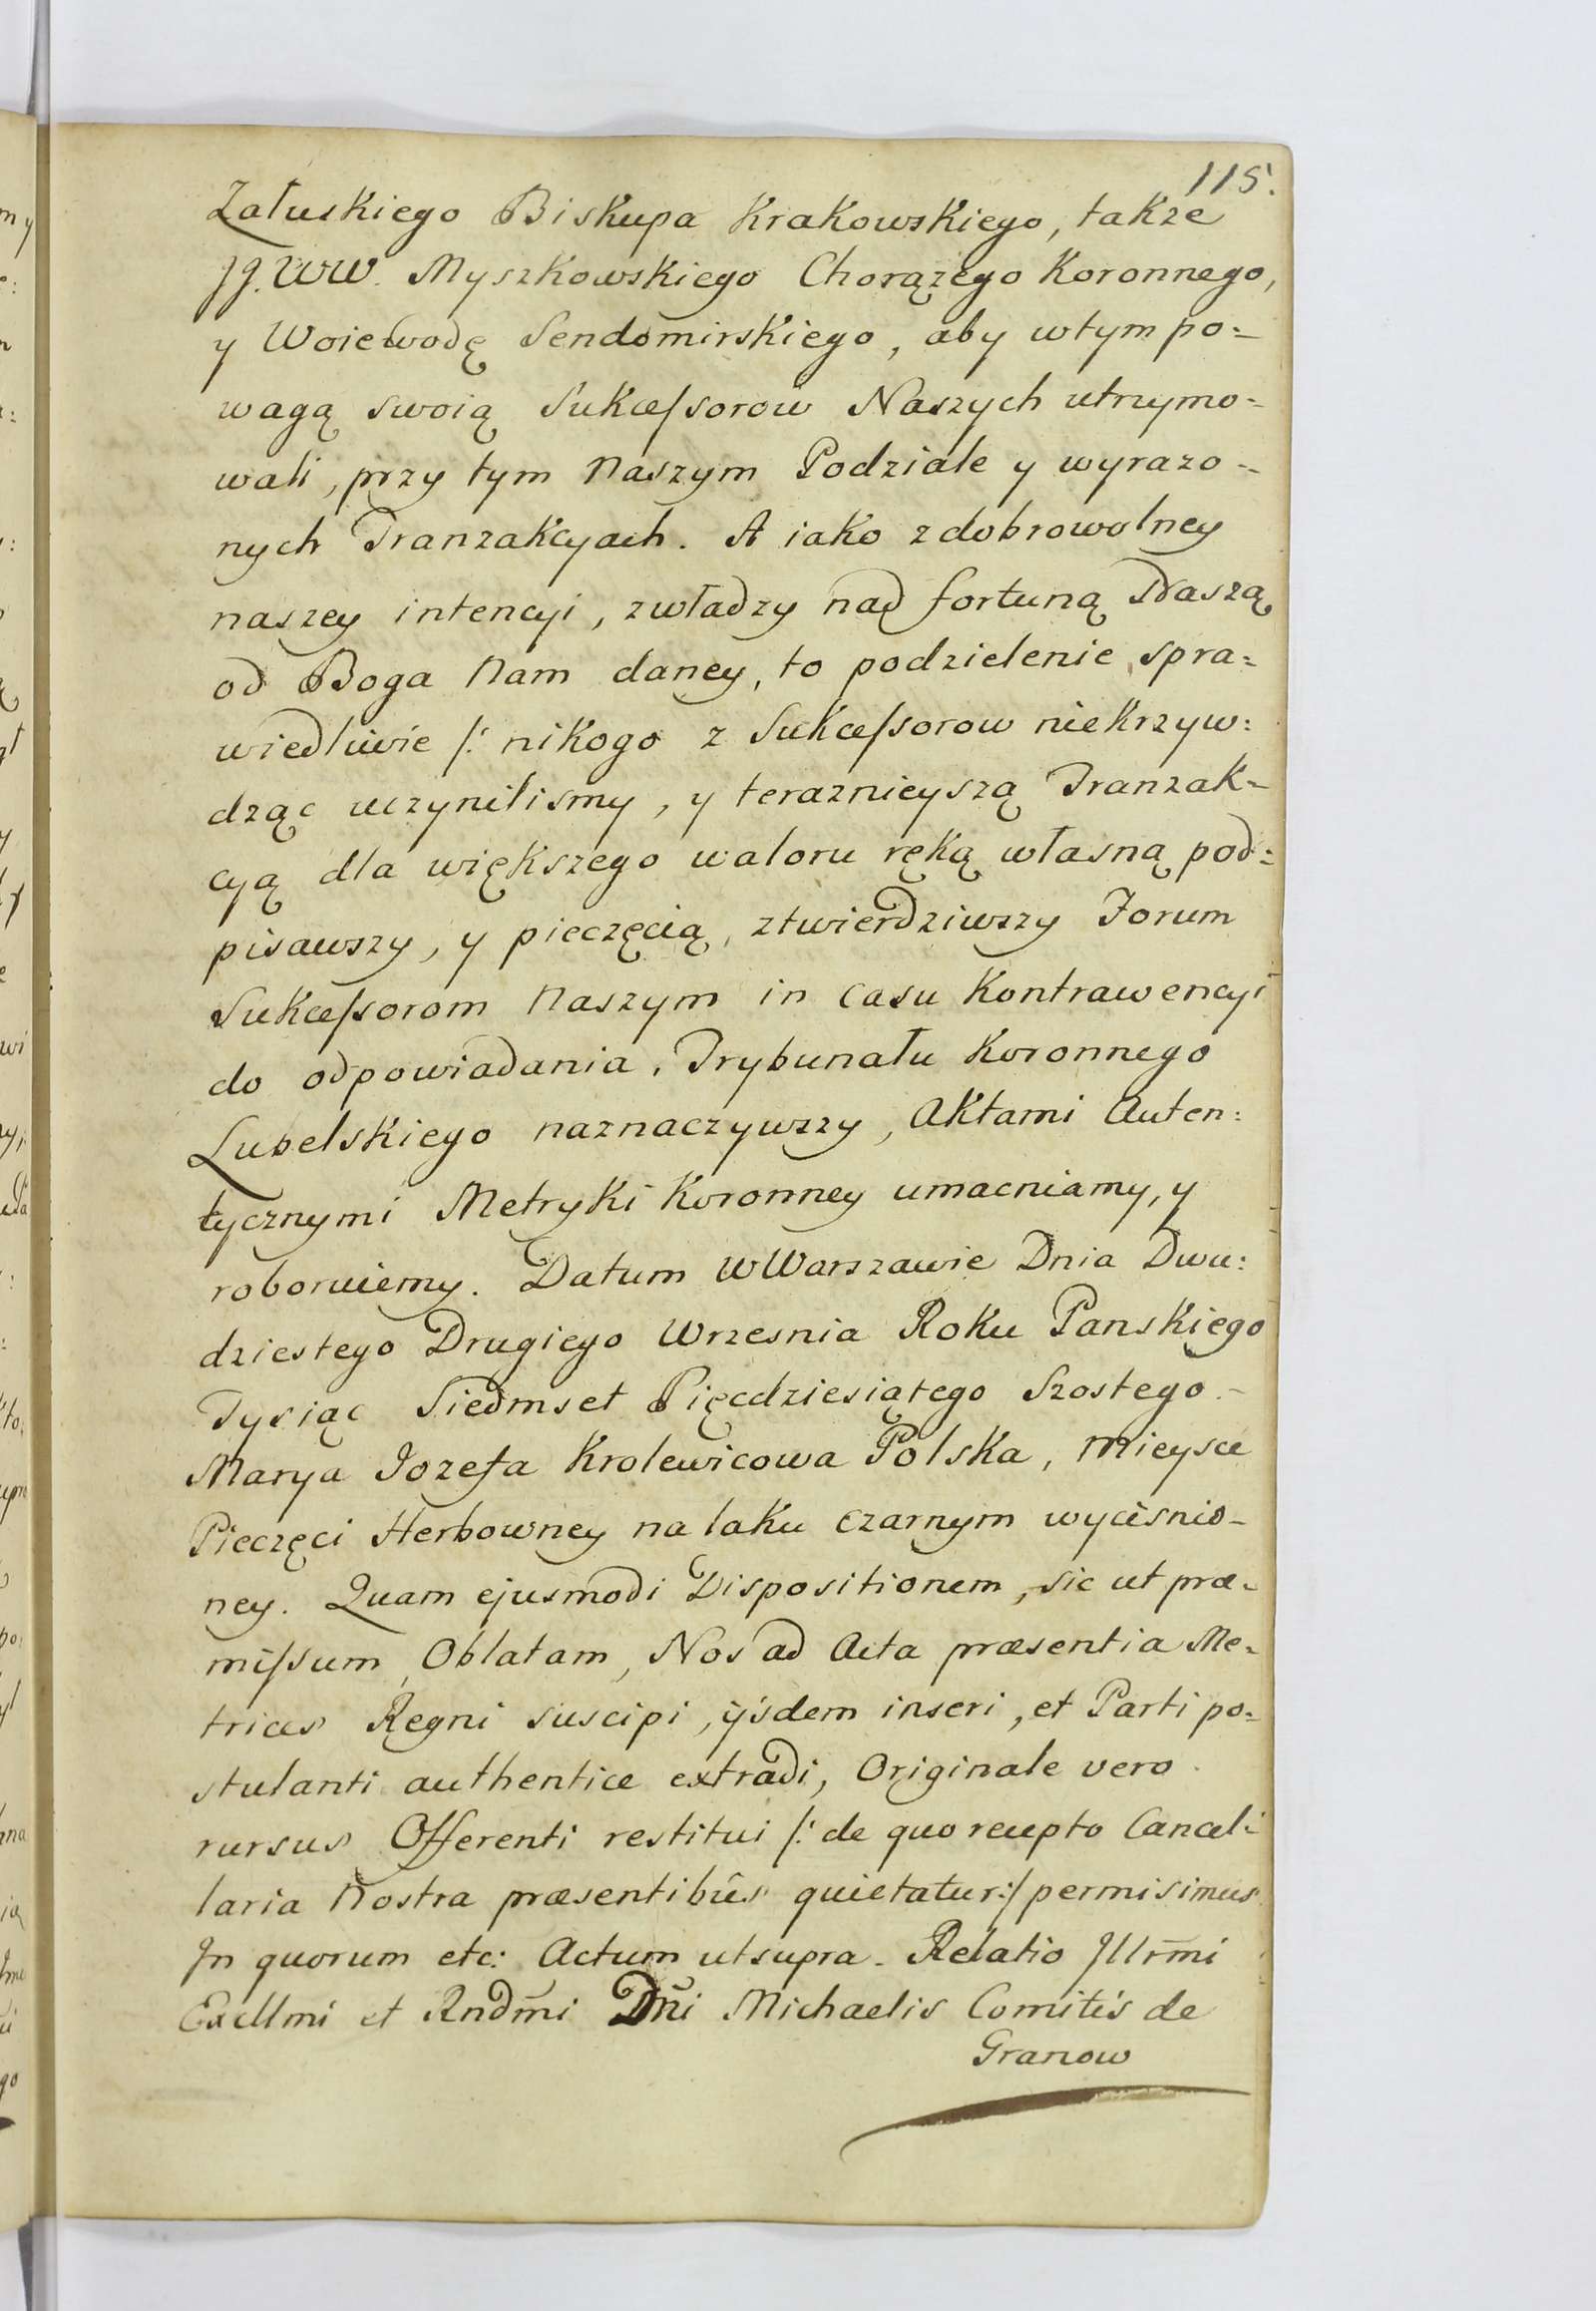 115.
Załuskiego Biskupa Krakowskiego, takze
JJ. WW. Myszkowskiego Chorązego Koronnego,
y Woiewodę Sendomirskiego, aby wtym po=
wagą swoią Sukcessorow Naszych utrzymo=
wali, przy tym Naszym Podziale y wyrazo=
nych Tranzakcyach. A iako z dobrowolney
naszey intencyi, z władzy nad fortuną Naszą
od Boga Nam daney, to podzielenie spra=
wiedliwie /: nikogo z Sukcessorow niekrzyw:
dząc uczynilismy, y teraznieyszą Tranzak=
cyą dla większego waloru ręką własną pod=
pisawszy, y pieczęcią, ztwierdziwszy Forum
Sukcessorom Naszym in Casu Kontrawencyi
do odpowiadania, Trybunału Koronnego
Lubelskiego naznaczywszy, Aktami Auten:
tycznymi Metryki Koronney umacniamy, y
roboruiemy. Datum w Warszawie Dnia Dwu:
dziestego Drugiego Wrzesnia Roku Panskiego
Tysiąc Siedmset Pięcdziesiątego Szostego.-
Marya Jozefa Krolewicowa Polska, Mieysce
Pieczęci Herbowney na laku czarnym wycisnio=
ney. Quam ejusmodi Dispositionem, sic ut præ=
missum, Oblatam, Nos ad Acta præsentia Me=
trices Regni suscipi, ijsdem inseri, et Parti po=
stulanti authentice extradi, Originale vero
rursus Offerenti restitui /: de quo recepto Cancel:
laria Nostra præsentibûs quietatur :/ permisimus
In quorum etc: Actum ut supra. Relatio Illr̃mi
Excllmi et Rndm̃i Dñi Michaelis Comitis de
Granow